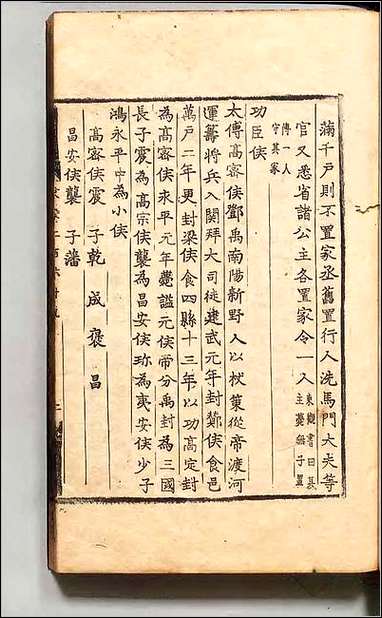 滿千戶則不置家丞舊置行人洗馬門大夫等
官又悉省諸公主各置家令一人東觀書曰其主薨無子置
傅一人守其家
功臣侯
太傅高密侯鄧禹南陽新野人以杖策從帝渡河
運籌將兵入関拜大司徒建武元年封酇侯食邑
萬戶二年更封梁侯食四縣十三年以功高定封
為高密侯永平元年薨諡元侯帝分禹封為三國
長子震為高宗侯襲為昌安侯珎為夷安侯少子
鴻永平中為小侯
高密侯震 子乾 成 褒 昌
昌安侯襲 子藩